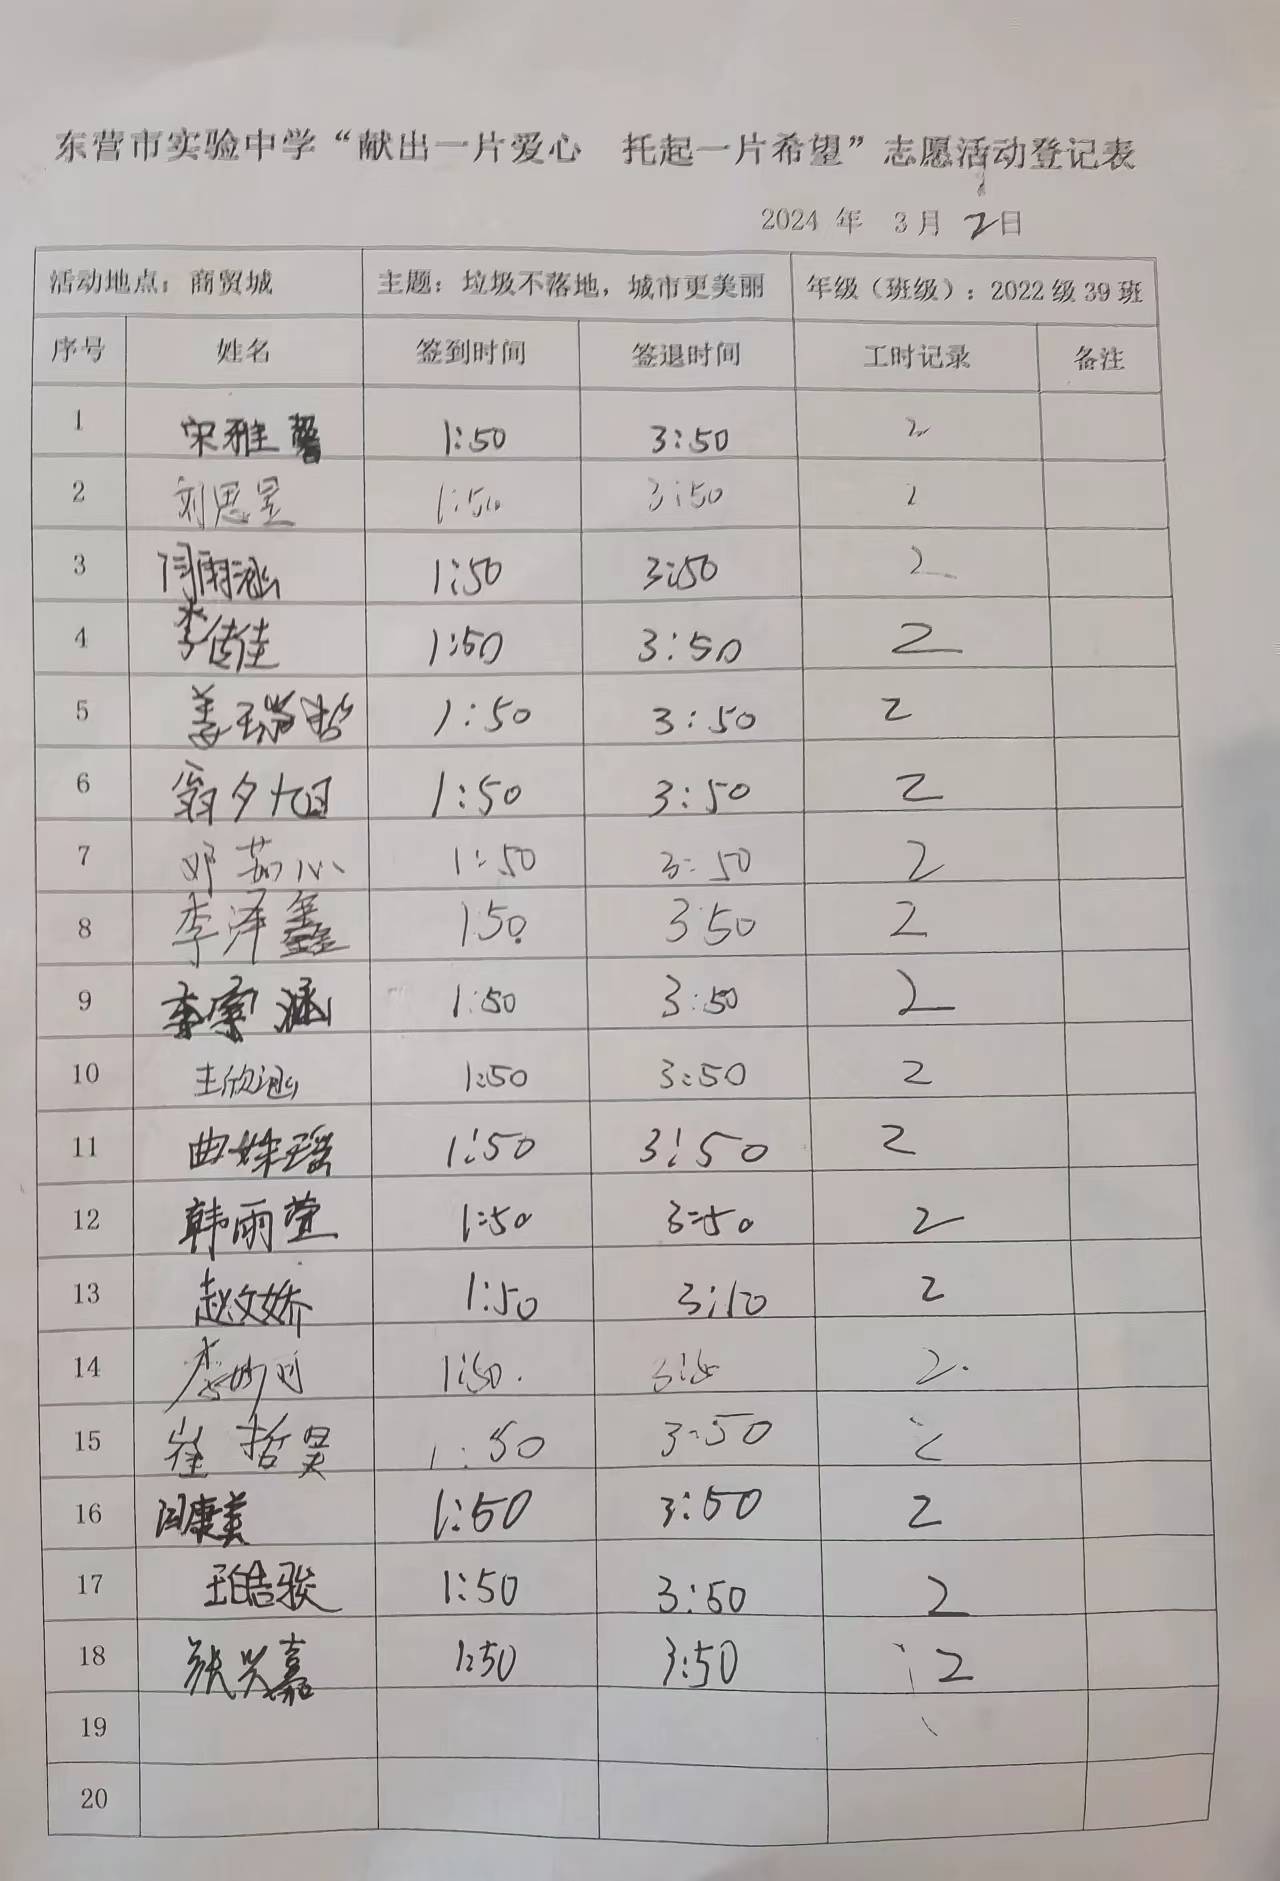 东营市实验中学“献出一片爱心 托起一片希望”志愿活动登记表
2024 年 3月 2日
活动地点：商贸城 主题：垃圾不落地，城市更美丽 年级（班级）：2022级39班
序号 姓名 签到时间 签退时间 工时记录 备注
1 宋雅馨 1:50 3:50 2
2 刘思昱 1:50 3:50 2
3 闫雨涵 1:50 3:50 2
4 李佳 1:50 3:50 2
5 姜瑞哲 1:50 3:50 2
6 翁夕旭 1:50 3:50 2
7 邓茹心 1:50 3:50 2
8 李泽鑫 1:50 3:50 2
9 李宇涵 1:50 3:50 2
10 王欣涵 1:50 3:50 2
11 曲姝瑶 1:50 3:50 2
12 韩雨萱 1:50 3:50 2
13 赵文娇 1:50 3:10 2
14 李 1:50 2
15 崔哲昊 1:50 3:50 2
16 闫康美 1:50 3:50 2
17 王皓骏 1:50 3:50 2
18 张兴嘉 1:50 3:50 2
19
20